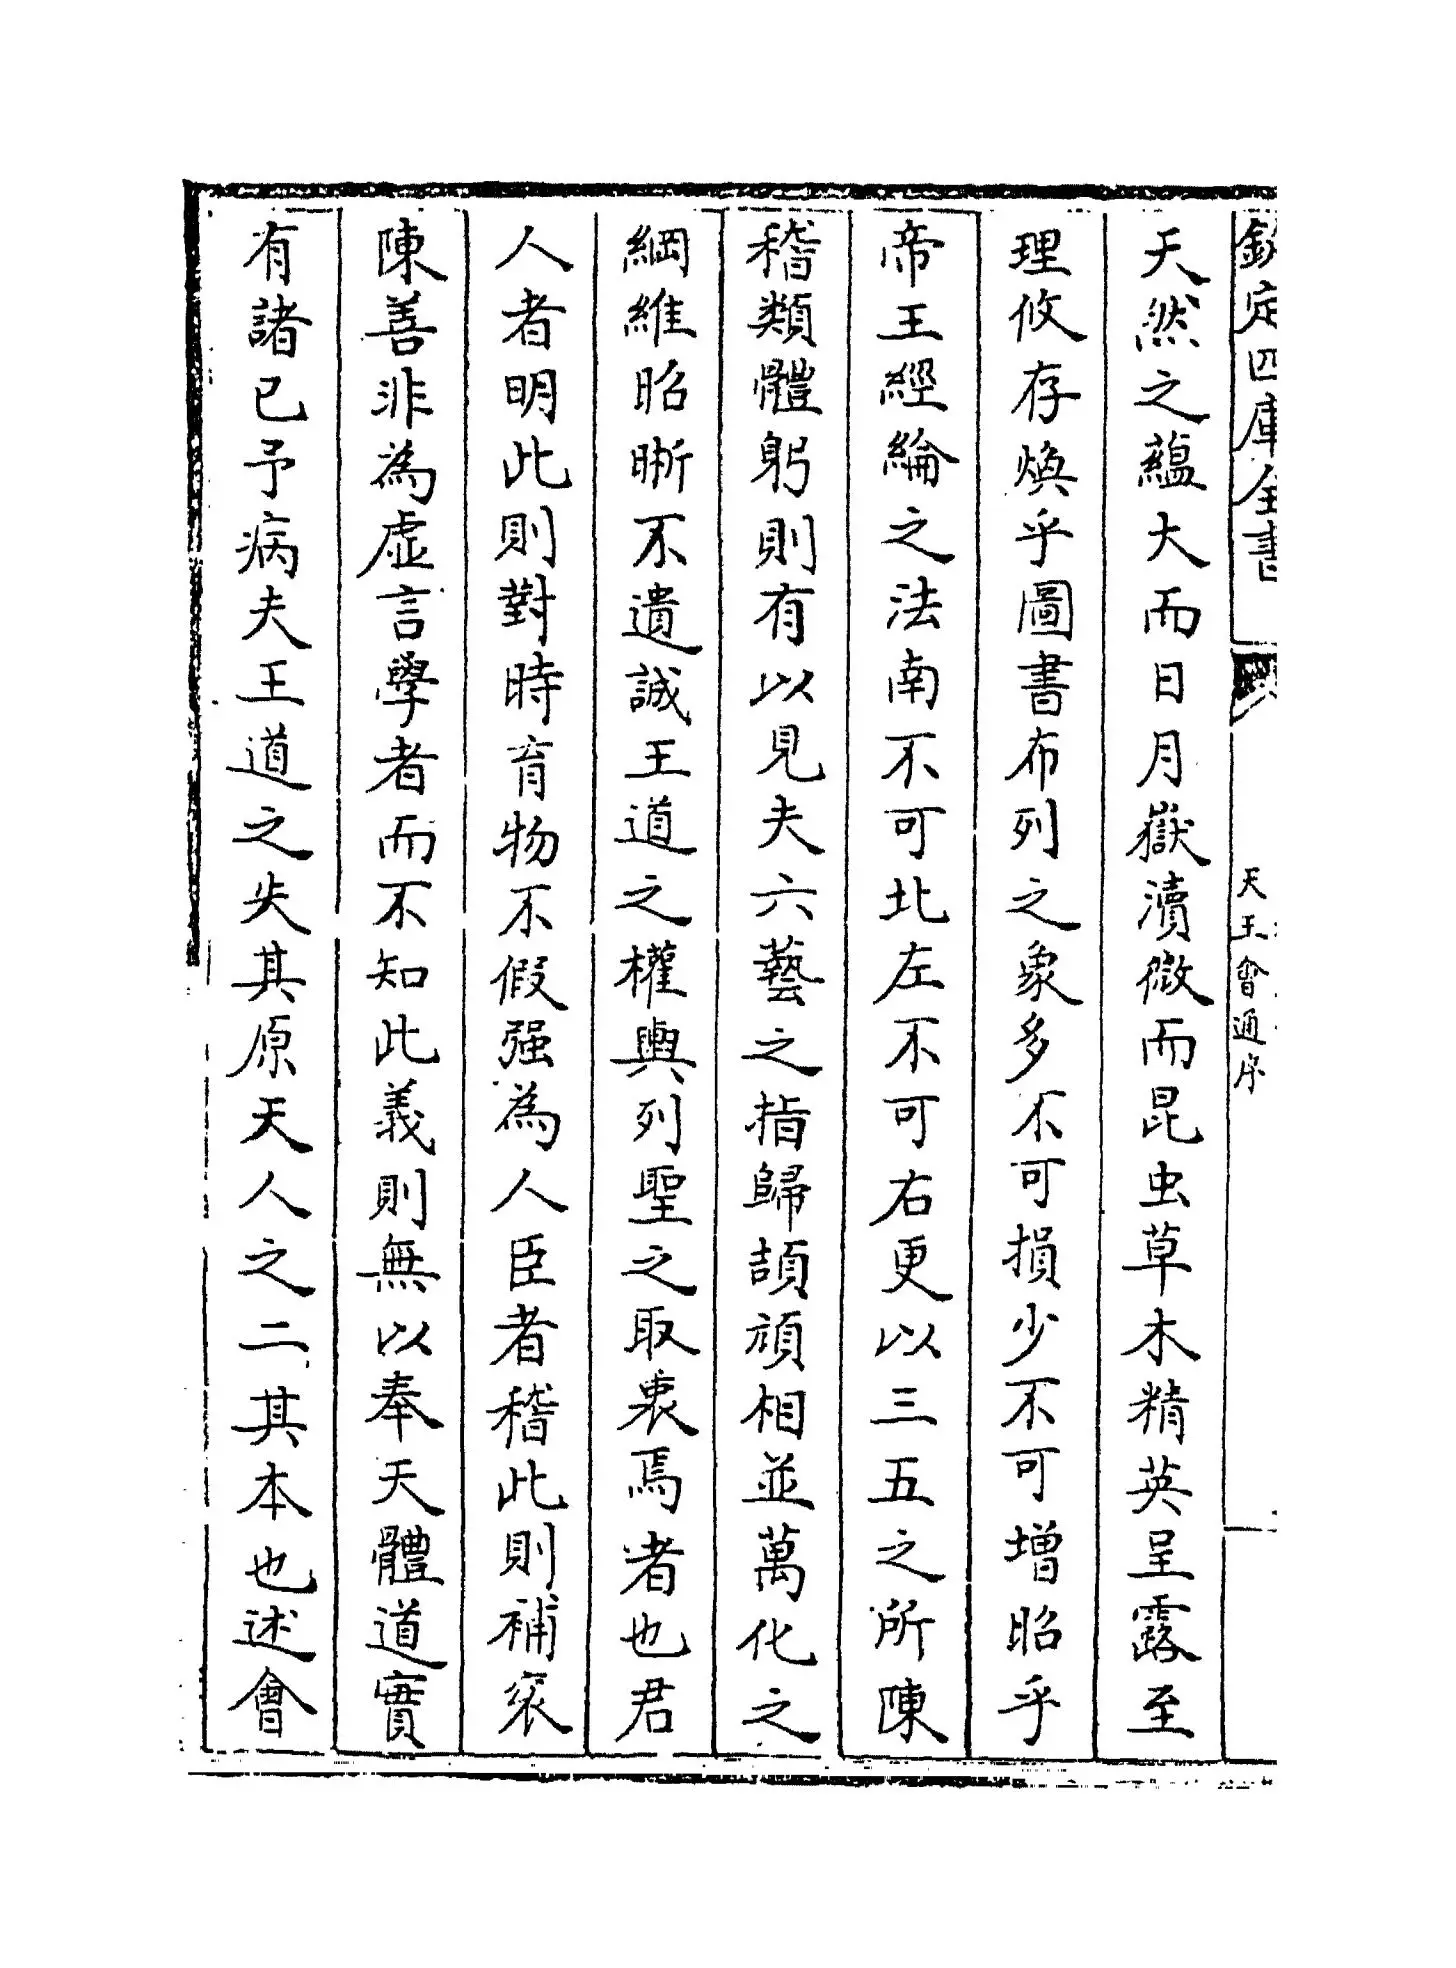 欽定四庫全書
天王會通序
天然之蘊大而日月嶽瀆微而昆虫草木精英呈露至
理攸存煥乎圖書布列之象多不可損少不可增昭乎
帝王經綸之法南不可北左不可右更以三五之所陳
稽類體躬則有以見夫六藝之指歸頡頏相並萬化之
綱維昭晰不遺誠王道之權輿列聖之取衷焉者也君
人者明此則對時育物不假强為人臣者稽此則補袞
陳善非為虛言學者而不知此義則無以奉天體道實
有諸已予病夫王道之失其原天人之二其本也述會